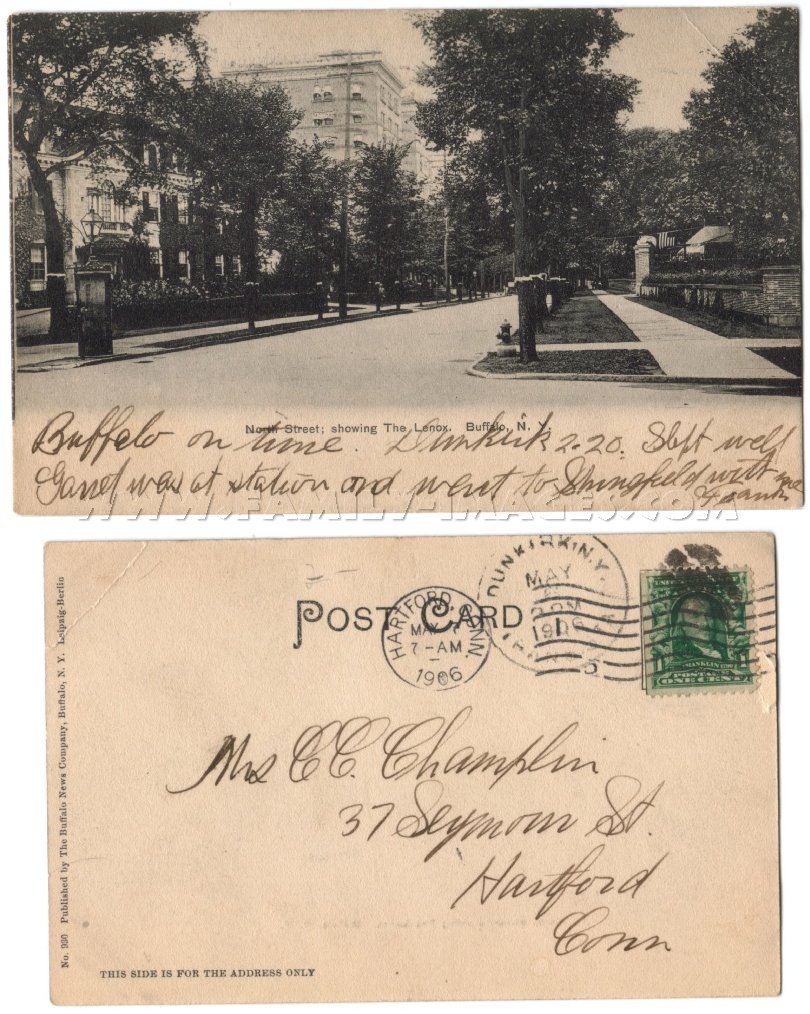 North Street; showing The Lenox. Buffalo, N. Y.
Buffalo on time. Dunkirk 2.20. Slept well
was at station and went to Springfield with me
Frank
WWW.FAMILY-IMAGES.COM
POST CARD
HARTFORD, CONN.
MAY 7
7-AM
1906
DUNKIRK, N.Y.
MAY
PM
1906
5
FRANKLIN
POSTAGE
ONE CENT
Mrs C C. Champlin
37 Seymour St.
Hartford
Conn
No. 930 Published by The Buffalo News Company, Buffalo, N. Y. Leipzig-Berlin
THIS SIDE IS FOR THE ADDRESS ONLY